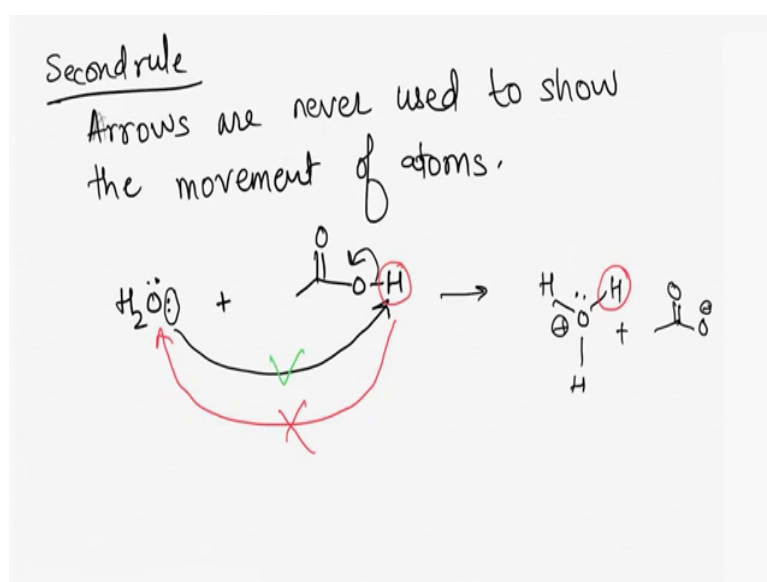 Second rule
Arrows are never used to show
the movement of atoms.
O
H₂O + O-H → H H O
⊕ O + O ⊕
H